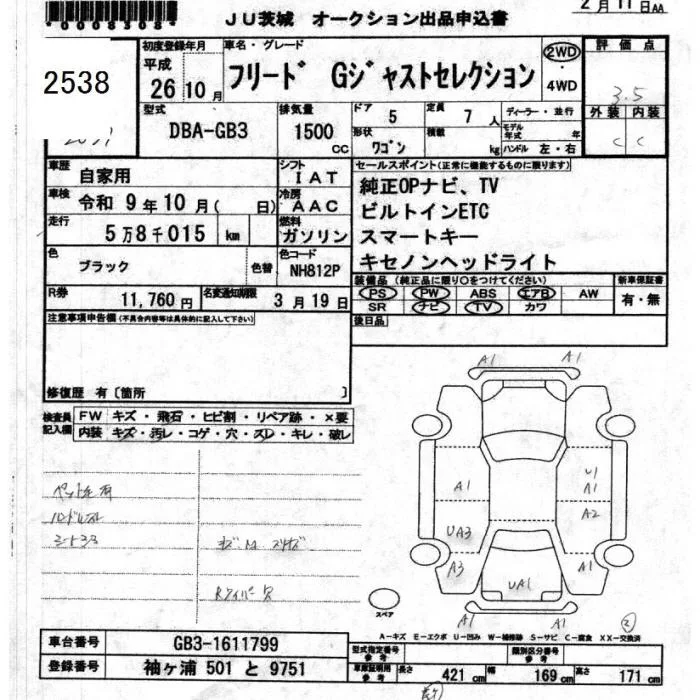 *0008308*
2月11日AA
JU茨城 オークション出品申込書
2538
初度登録年月
平成
26 10月
車名・グレード
フリード Gジャストセレクション
2WD
・
4WD
評価点
3.5
外装 内装
C C
型式
DBA-GB3
排気量
1500 cc
ドア
5
定員
7 人
形状
ワゴン
積載
kg
ディーラー・並行
モデル年式 年
ハンドル 左・右
車歴
自家用
シフト
IAT
車検
令和 9年10月( 日)
冷房
AAC
走行
5万8千015 km
燃料
ガソリン
色
ブラック
色替
色コード
NH812P
R券
11,760円
名変通知期限
3月19日
セールスポイント(正常に機能するものに限ります)
純正OPナビ、TV
ビルトインETC
スマートキー
キセノンヘッドライト
装備品(純正品に限り○をつけてください)
新車保証書
PS PW ABS エアB AW
SR ナビ TV カワ
有・無
後日品
注意事項申告欄(不具合内容等は具体的に記入して下さい)
修復歴 有〔箇所 〕
検査員記入欄
FW キズ・飛石・ヒビ割・リペア跡・×要
内装 キズ・汚レ・コゲ・穴・スレ・キレ・破レ
A1 A1
A1
U1
A1
A2
UA3
A3
A1
UA1
A1 A1
スペア
2
A-キズ E-エクボ U-凹み W-補修跡 S-サビ C-腐食 XX-交換済
車台番号
GB3-1611799
登録番号
袖ヶ浦 501 と 9751
型式指定番号
参考
類別区分番号
参考
車庫証明用
参考
長さ 421 cm
幅 169 cm
高さ 171 cm